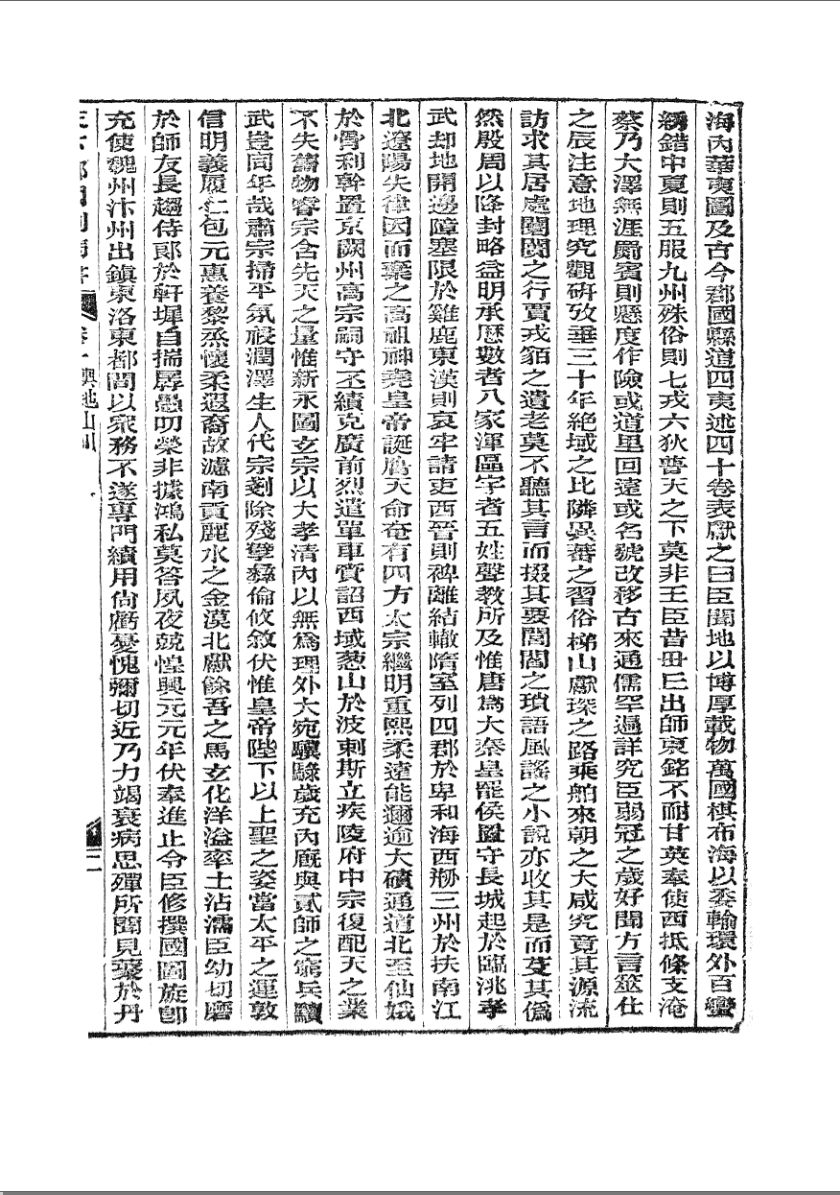 海內華夷圖及古今郡國縣道四夷述四十卷表獻之曰臣聞地以博厚載物萬國棋布海以委輸環外百蠻
繡錯中夏則五服九州殊俗則七戎六狄普天之下莫非王臣昔毌丘出師東銘不耐甘英奉使西抵條支淹
蔡乃大澤無涯罽賓則懸度作險或道里回遠或名號改移古來通儒罕遍詳究臣弱冠之歲好聞方言筮仕
之辰注意地理究觀研攷垂三十年絕域之比隣異蕃之習俗梯山獻琛之路乘舶來朝之人咸究竟其源流
訪求其居處闤闠之行賈戎貊之遺老莫不聽其言而掇其要閭閻之瑣語風謠之小說亦收其是而芟其僞
然殷周以降封略益明承歷數者八家渾區宇者五姓聲教所及惟唐爲大秦皇罷侯置守長城起於臨洮孝
武却地開邊障塞限於雞鹿東漢則哀牢請吏西晉則裨離結轍隋室列四郡於卑和海西剏三州於扶南江
北遼陽失律因而棄之高祖神堯皇帝誕膺天命奄有四方太宗繼明重熙柔遠能邇逾大磧通道北至仙娥
於骨利幹置京闕州高宗嗣守丕績克廣前烈遣單車賫詔西域葱山於波剌斯立疾陵府中宗復配天之業
不失舊物睿宗含先天之量惟新永圖玄宗以大孝清內以無爲理外大宛驥騄歲充內廐與貳師之窮兵黷
武豈同年哉肅宗掃平氛祲潤澤生人代宗剗除殘孽彝倫攸敘伏惟皇帝陛下以上聖之姿當太平之運敦
信明義履仁包元惠養黎蒸懷柔遐裔故瀘南貢麗水之金漠北獻餘吾之馬玄化洋溢率土沾濡臣幼切磨
於師友長趨侍郞於軒墀自揣孱愚叨榮非據鴻私莫答夙夜兢惶興元元年伏奉進止令臣修撰國圖旋卽
充使魏州汴州出鎭東洛東都間以衆務不遂專門績用尙虧憂愧彌切近乃力竭衰病思殫所聞見藂於丹
卷一輿地山川
二